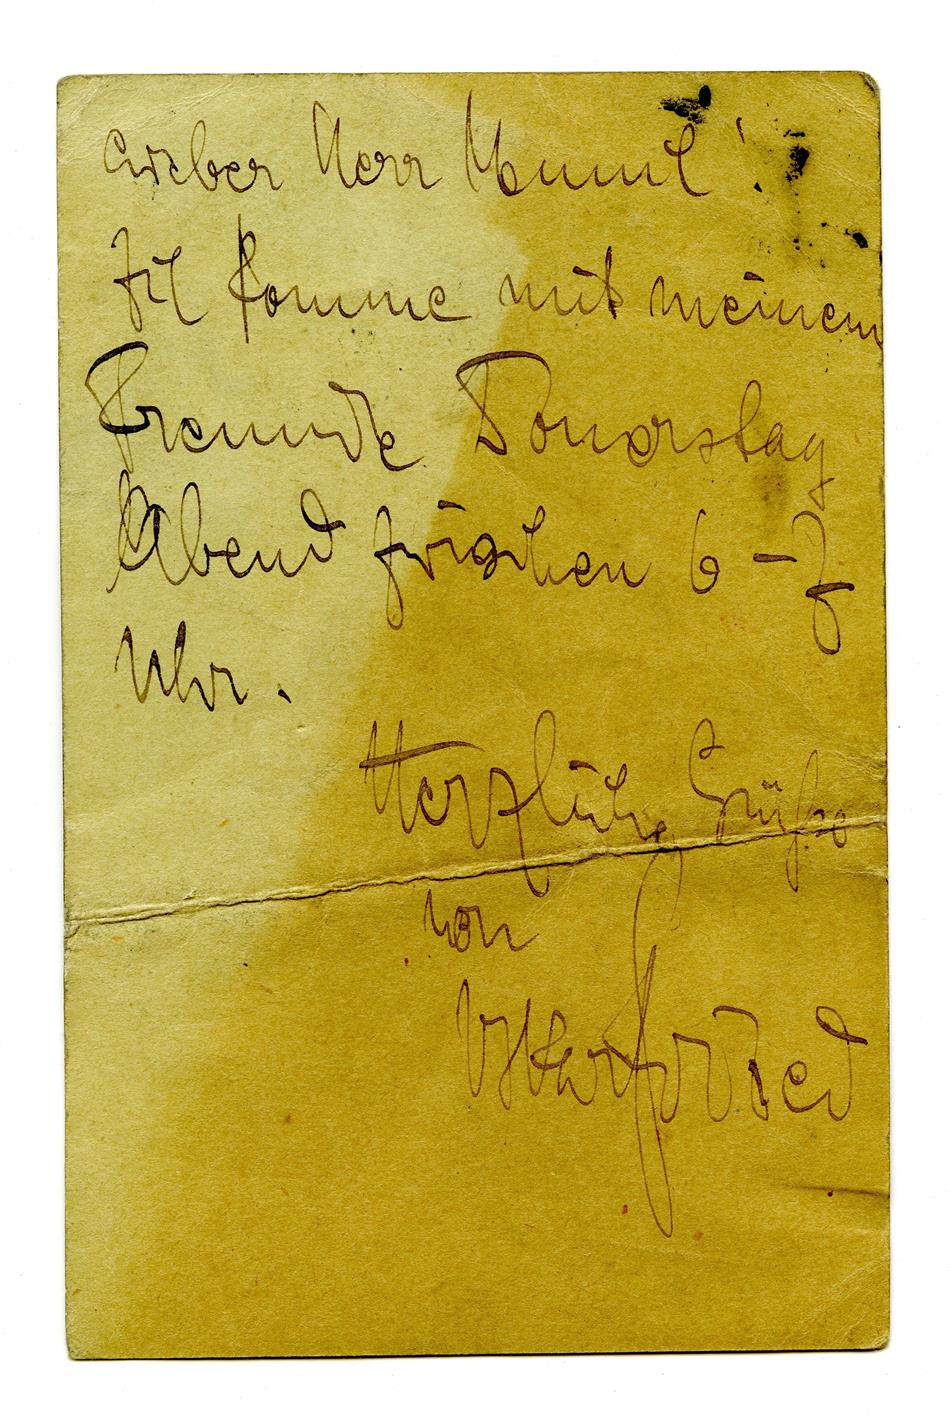 Lieber Herr
Ich komme mit meinem
Freunde Donnerstag
Abend zwischen 6 – 7
Uhr.
Herzliche Grüße
von